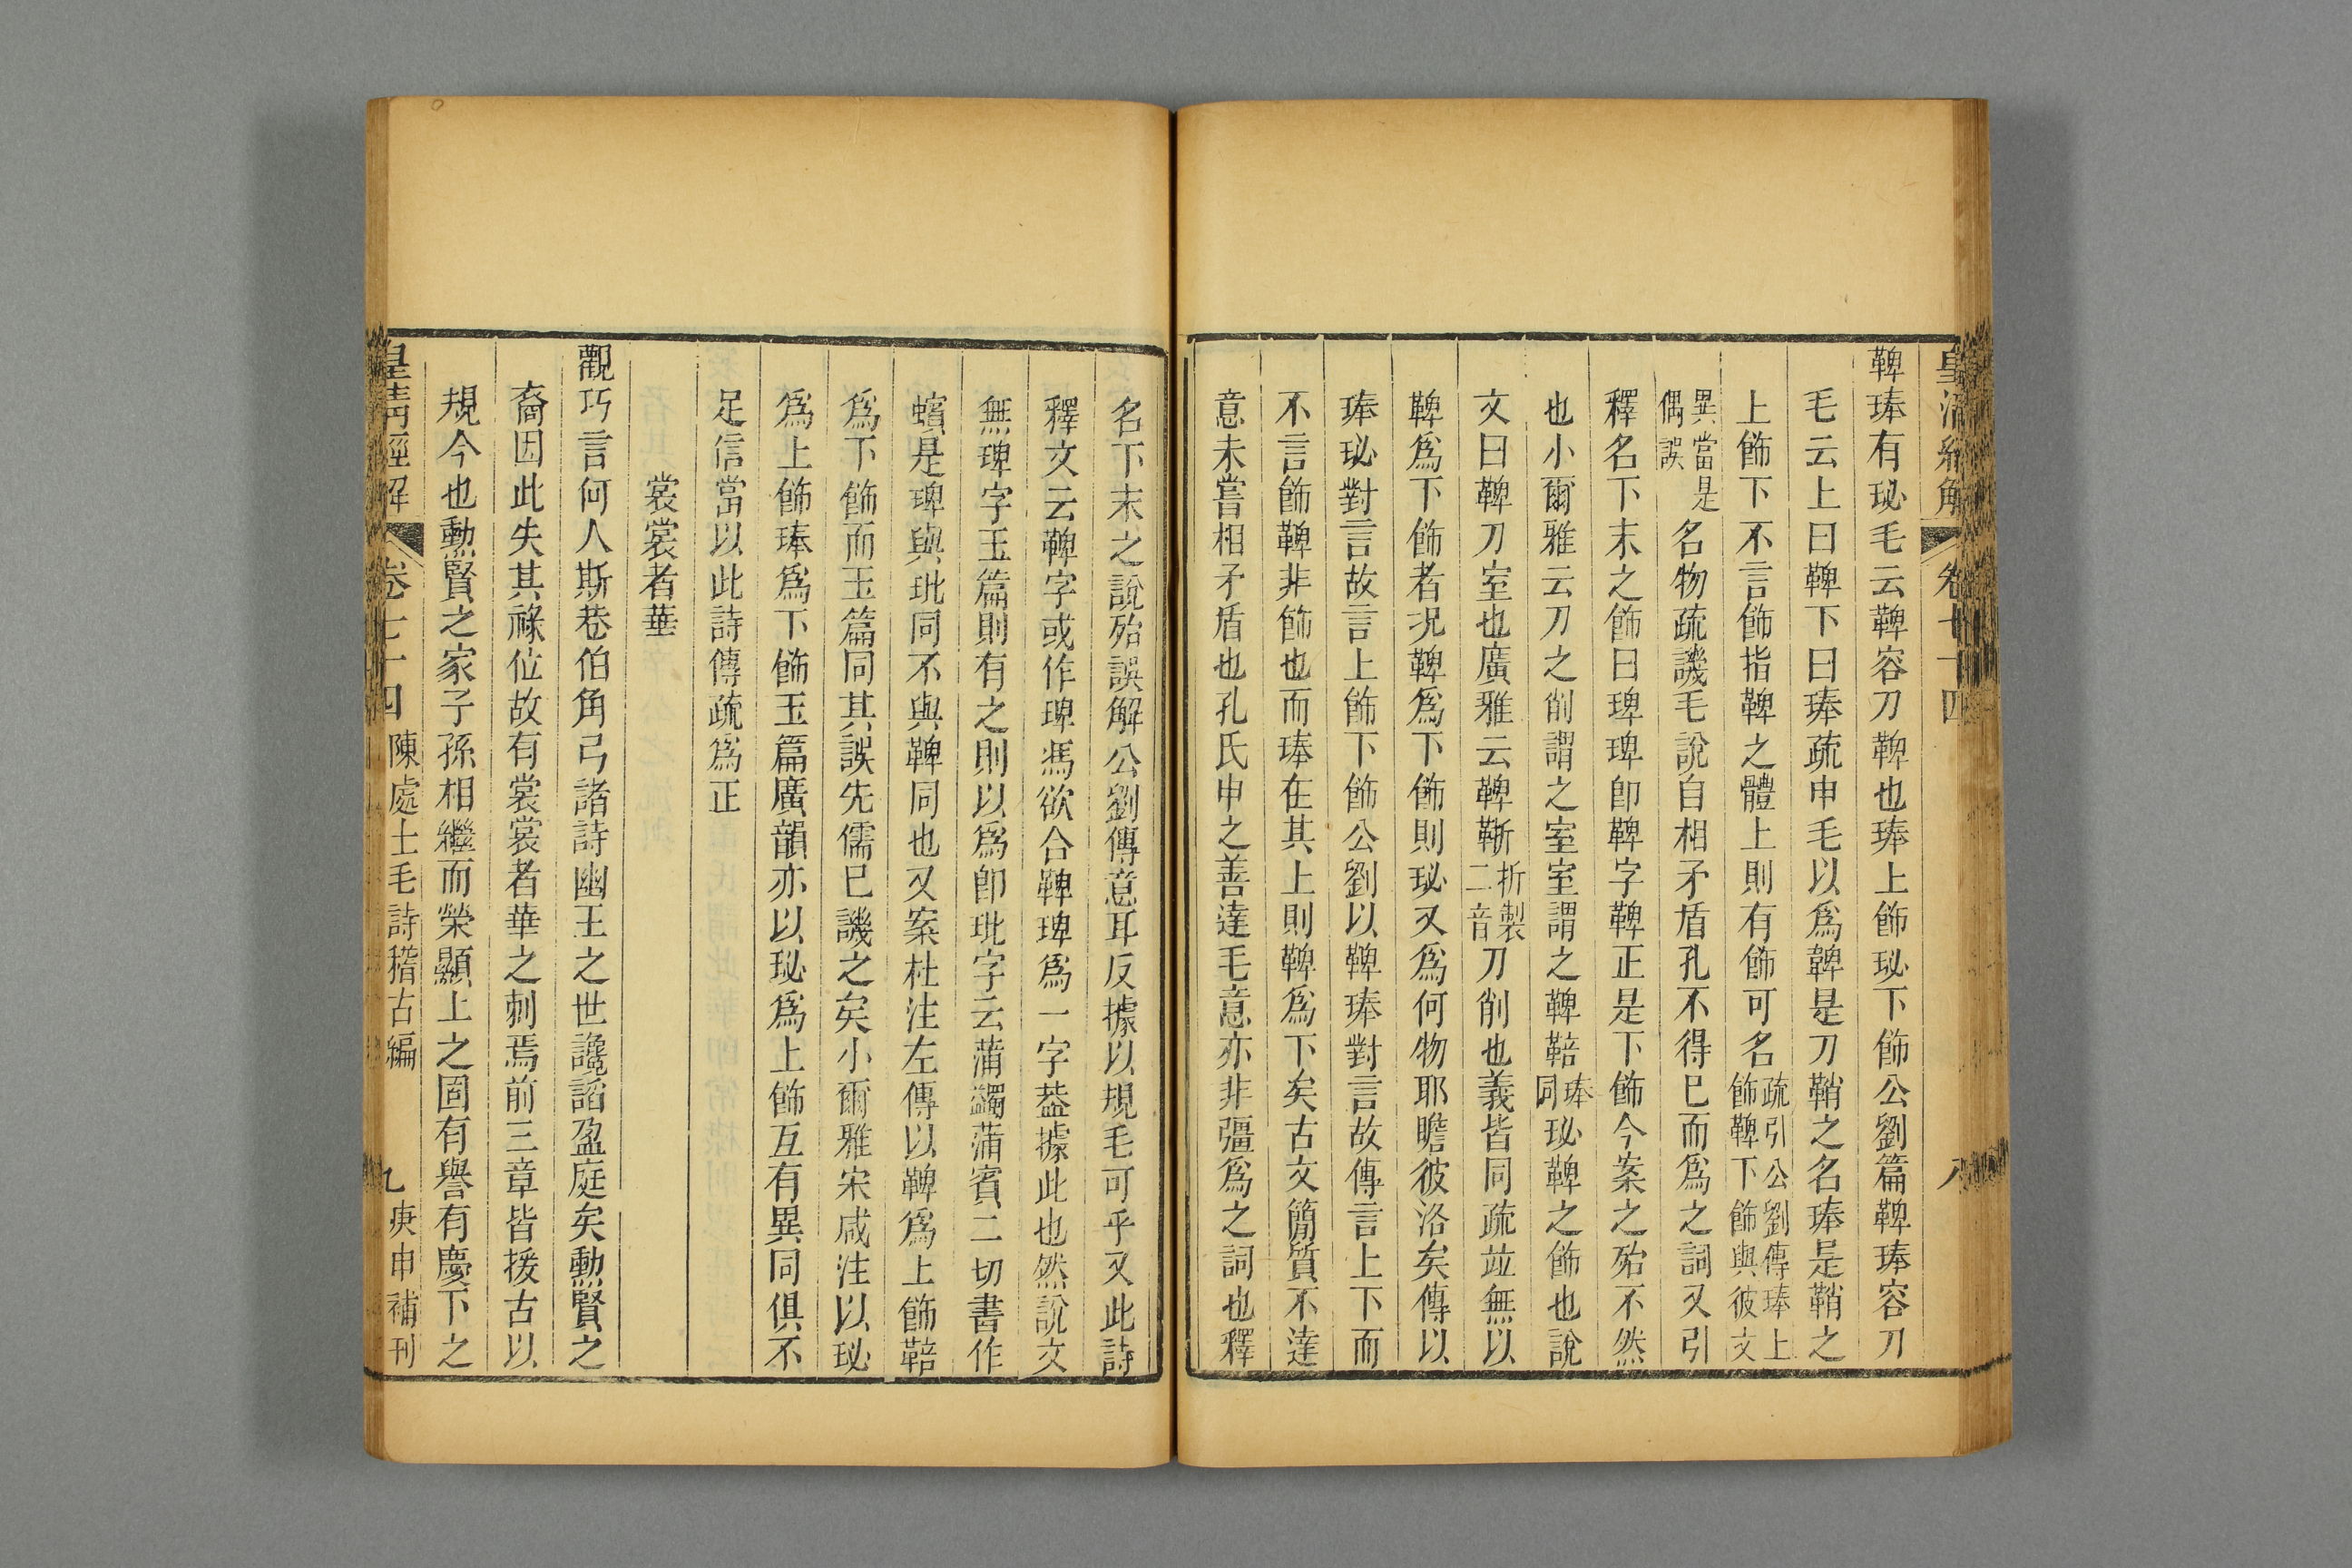 皇清經解 卷七十四 八
鞞琫有珌毛云鞞容刀鞞也琫上飾珌下飾公劉篇鞞琫容刀
毛云上曰鞞下曰琫疏申毛以爲鞞是刀鞘之名琫是鞘之
上飾下不言飾指鞞之體上則有飾可名疏引公劉傳琫上飾鞞下飾與彼文
異當是偶誤名物疏譏毛說自相矛盾孔不得已而爲之詞又引
釋名下末之飾曰琕琕卽鞞字鞞正是下飾今案之殆不然
也小爾雅云刀之削謂之室室謂之鞞鞛琫同珌鞞之飾也說
文曰鞞刀室也廣雅云鞞䩢折製二音刀削也義皆同疏竝無以
鞞爲下飾者況鞞爲下飾則珌又爲何物耶瞻彼洛矣傳以
琫珌對言故言上飾下飾公劉以鞞琫對言故傳言上下而
不言飾鞞非飾也而琫在其上則鞞爲下矣古文簡質不達
意未嘗相矛盾也孔氏申之善達毛意亦非彊爲之詞也釋
名下末之說殆誤解公劉傳意耳反據以規毛可乎又此詩
釋文云鞞字或作琕馮欲合鞞琕爲一字葢據此也然說文
無琕字玉篇則有之則以爲卽玭字云蒲蠲蒲賓二切書作
蠙是琕與玭同不與鞞同也又案杜注左傳以鞞爲上飾鞛
爲下飾而玉篇同其誤先儒已譏之矣小爾雅宋咸注以珌
爲上飾琫爲下飾玉篇廣韻亦以珌爲上飾互有異同俱不
足信當以此詩傳疏爲正
裳裳者華
觀巧言何人斯巷伯角弓諸詩幽王之世讒諂盈庭矣勳賢之
裔因此失其祿位故有裳裳者華之刺焉前三章皆援古以
規今也勳賢之家子孫相繼而榮顯上之固有譽有慶下之
皇清經解 卷七十四 陳處士毛詩稽古編 九 庚申補刊